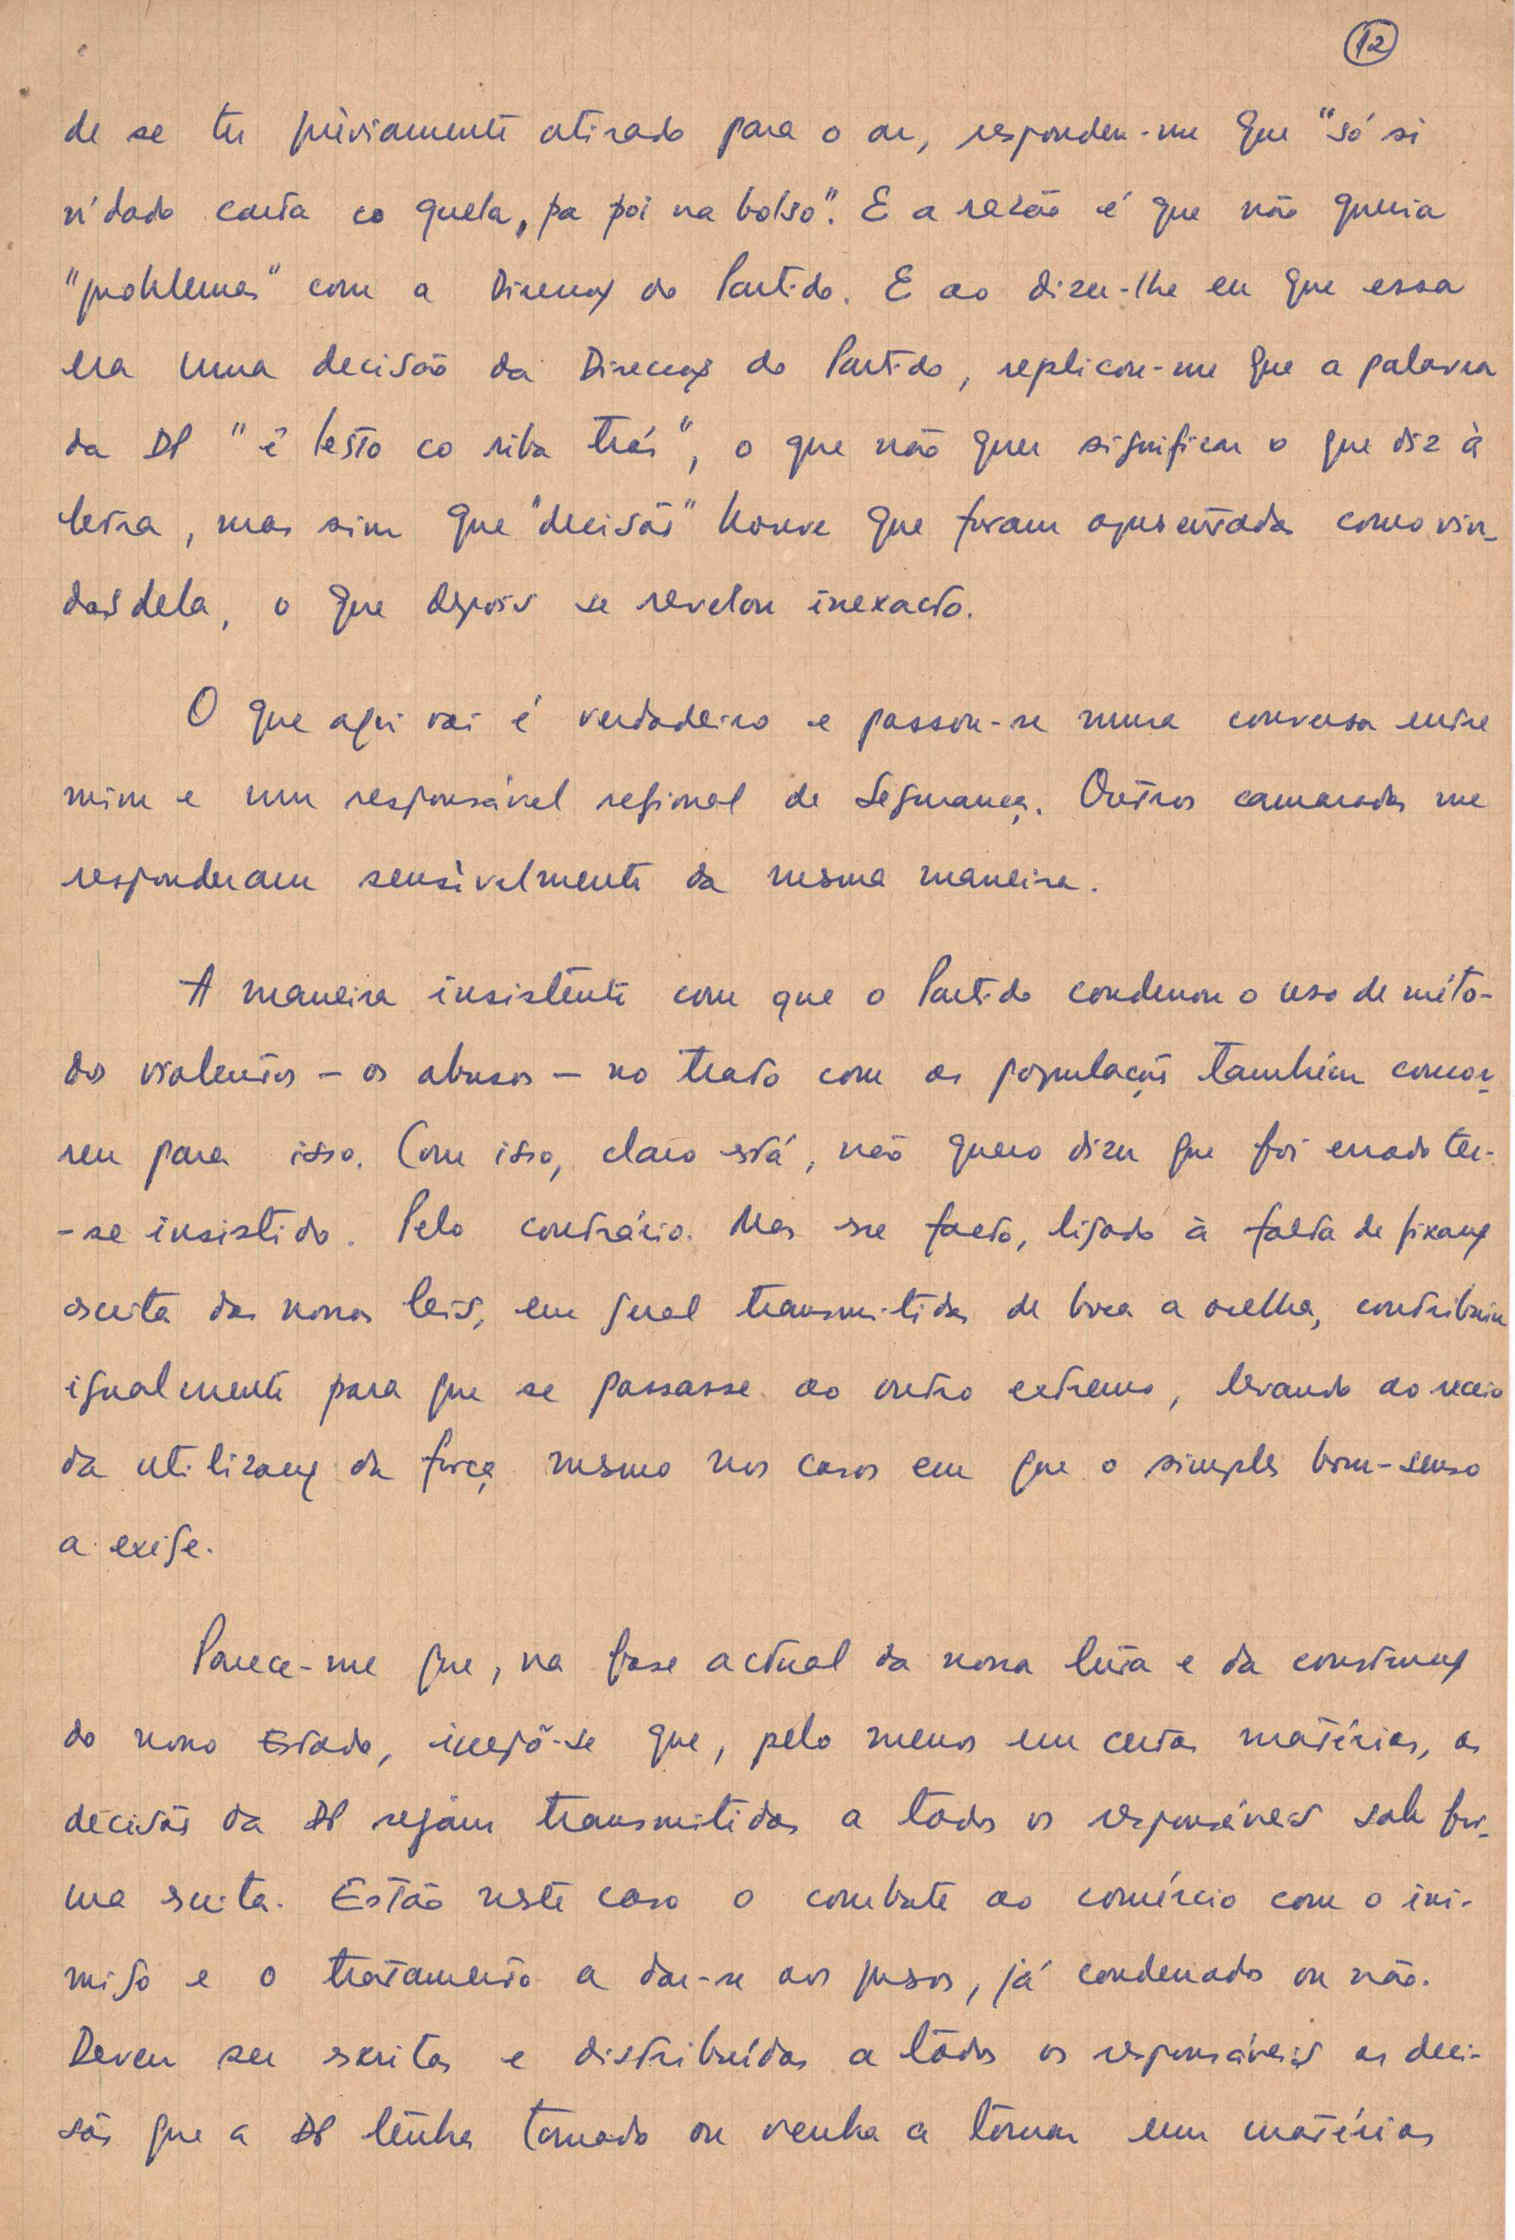 12
de se ter prèviamente atirado para o ar, respondeu-me que "só si
n'dado carta co quela, pa poi na bolso". E a razão é que não queria
"problemas" com a Direcção do Partido. E ao dizer-lhe eu que essa
era uma decisão da Direcção do Partido, replicou-me que a palavra
da DP "é lesto co riba trás", o que não quer significar o que diz à
letra, mas sim que "decisões" houve que foram apresentadas como vin-
das dela, o que depois se revelou inexacto.
O que aqui vai é verdadeiro e passou-se numa conversa entre
mim e um responsável regional de Segurança. Outros camaradas me
responderam sensìvelmente da mesma maneira.
A maneira insistente com que o Partido condenou o uso de méto-
dos violentos - os abusos - no trato com as populações também concor-
reu para isso. Com isso, claro está, não quero dizer que foi errado ter-
-se insistido. Pelo contrário. Mas esse facto, ligado à falta de fixação
escrita das nossas leis, em geral transmitidas de boca a orelha, contribuiu
igualmente para que se passasse ao outro extremo, levando ao receio
da utilização da força mesmo nos casos em que o simples bom-senso
a exige.
Parece-me que, na fase actual da nossa luta e da construção
do nosso Estado, impõe-se que, pelo menos em certas matérias, as
decisões da DP sejam transmitidas a todos os responsáveis sob for-
ma escrita. Estão neste caso o combate ao comércio com o ini-
migo e o tratamento a dar-se aos presos, já condenados ou não.
Devem ser escritas e distribuídas a todos os responsáveis as deci-
sões que a DP tenha tomado ou venha a tomar em matérias